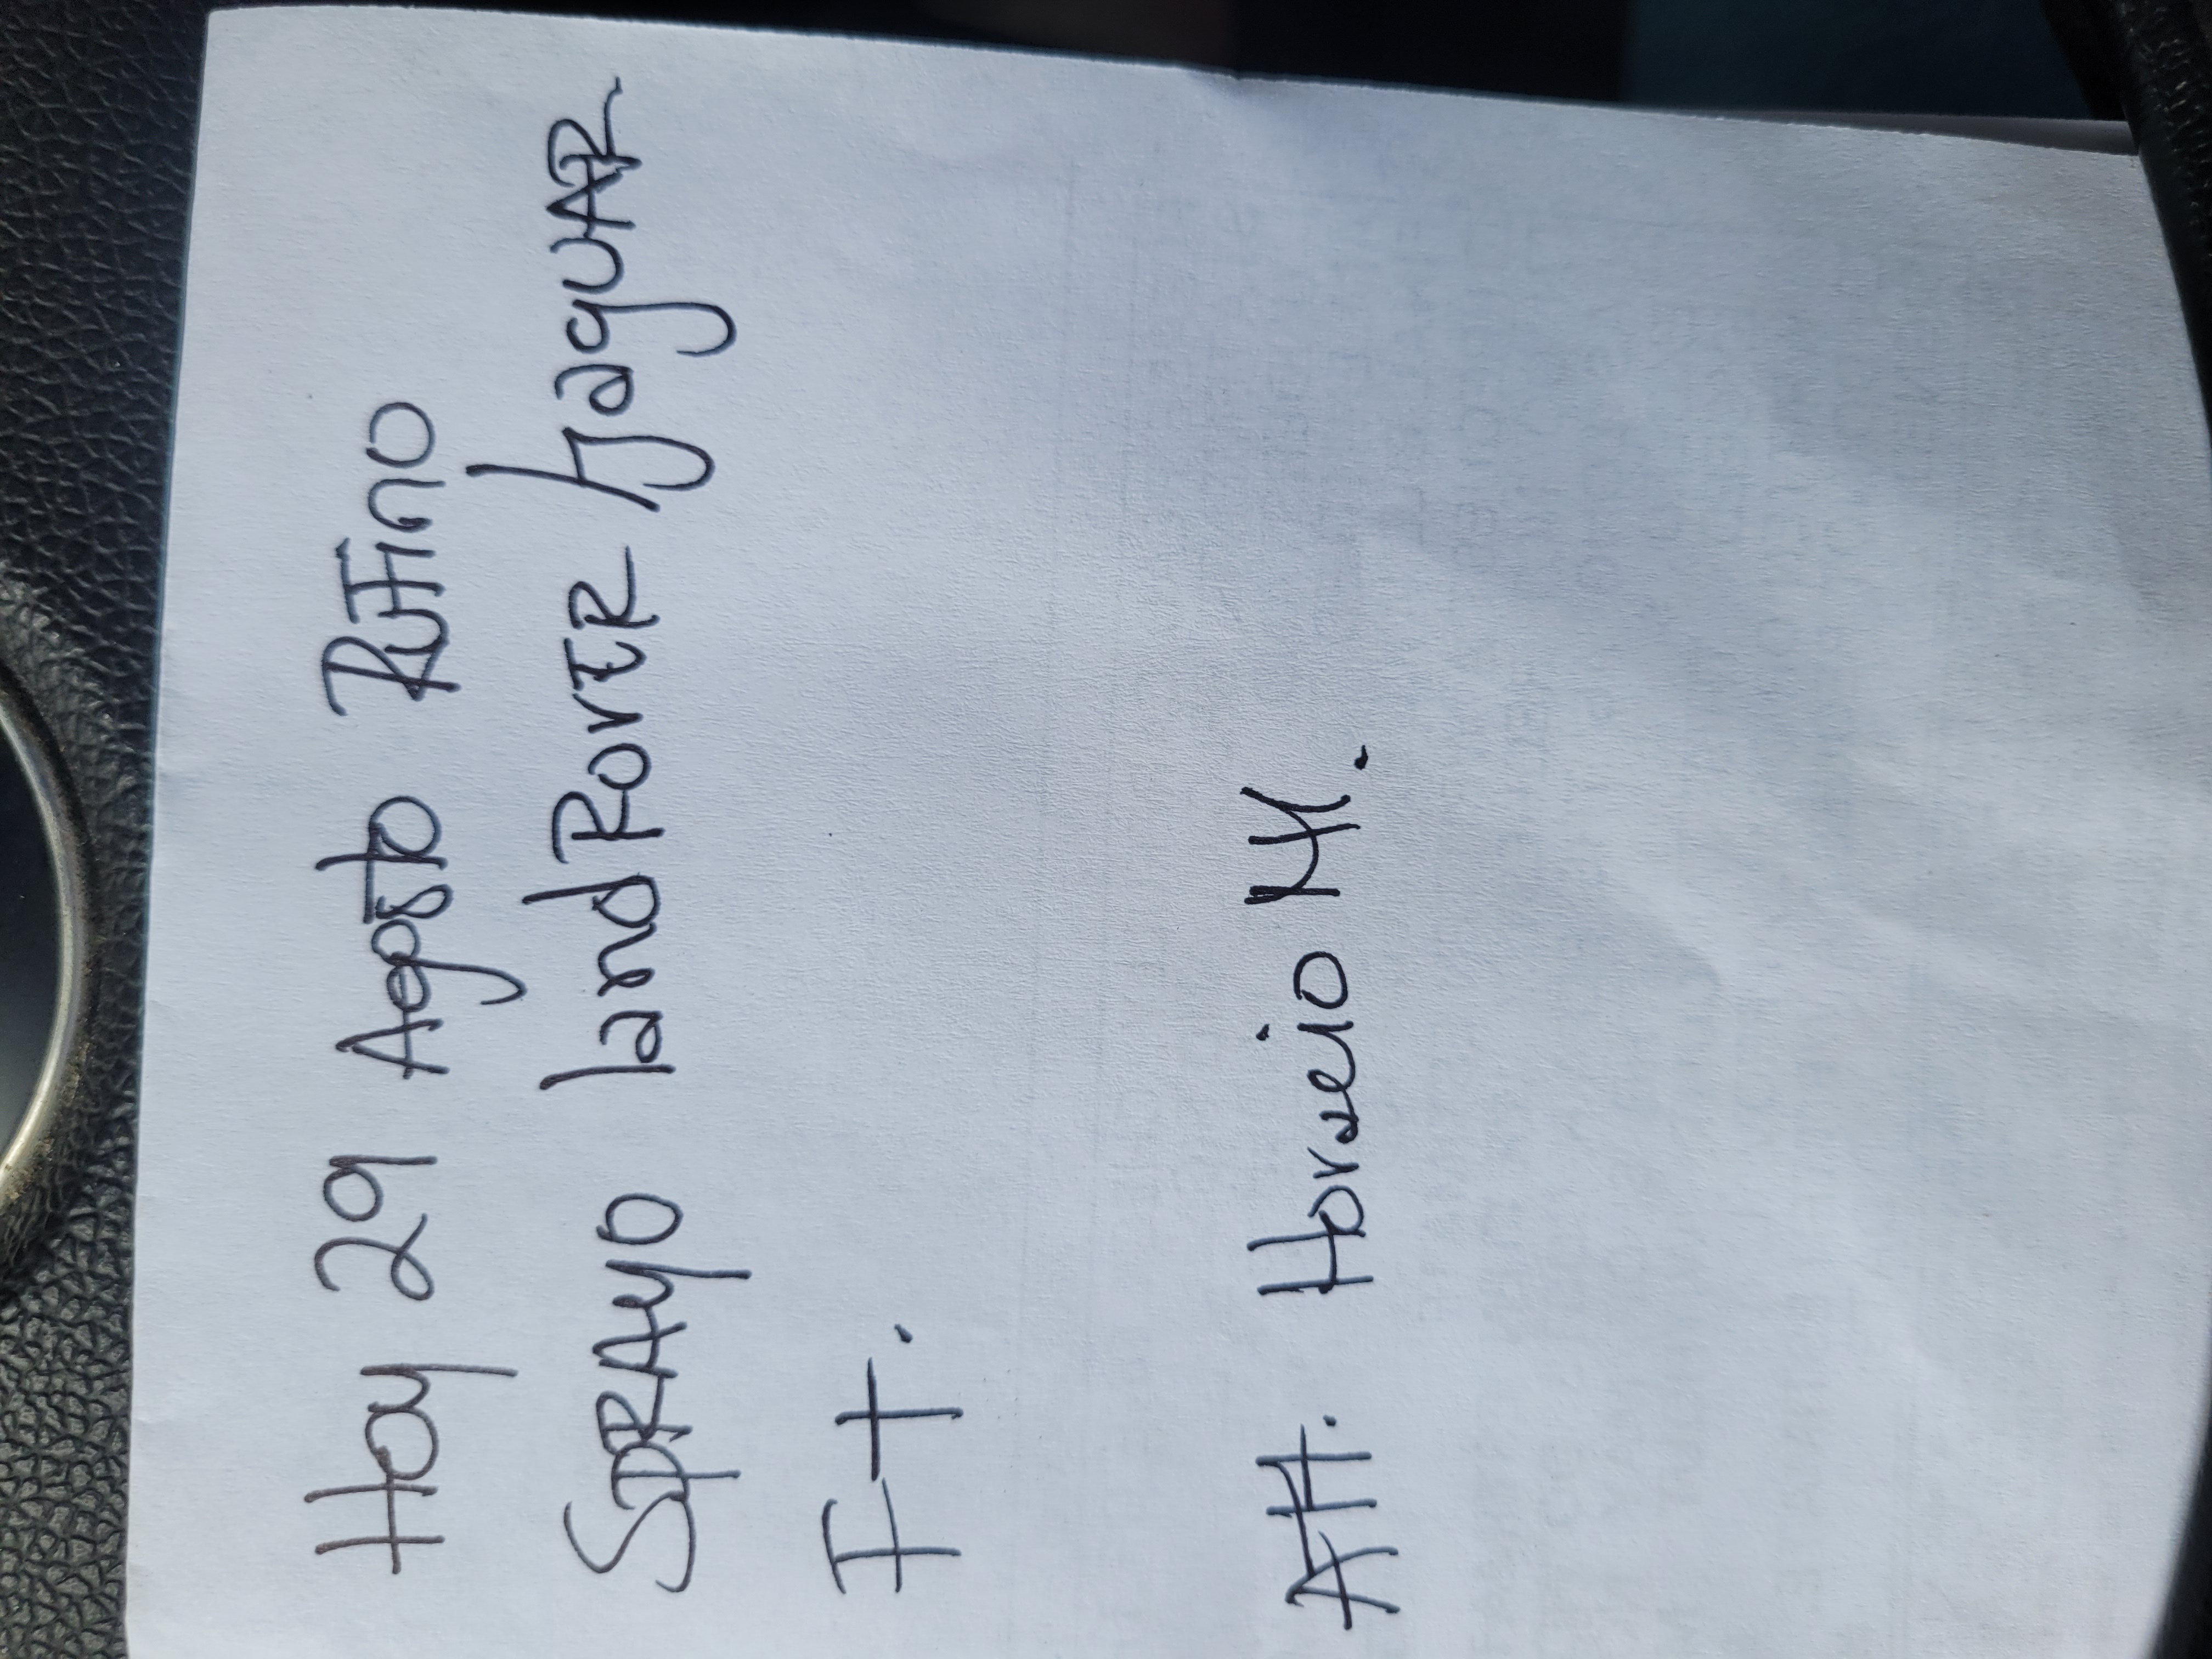 Hoy 29 Agosto Rufino
SPRAyo land RovER / JagUAR
F+.
Att. Horacio M.